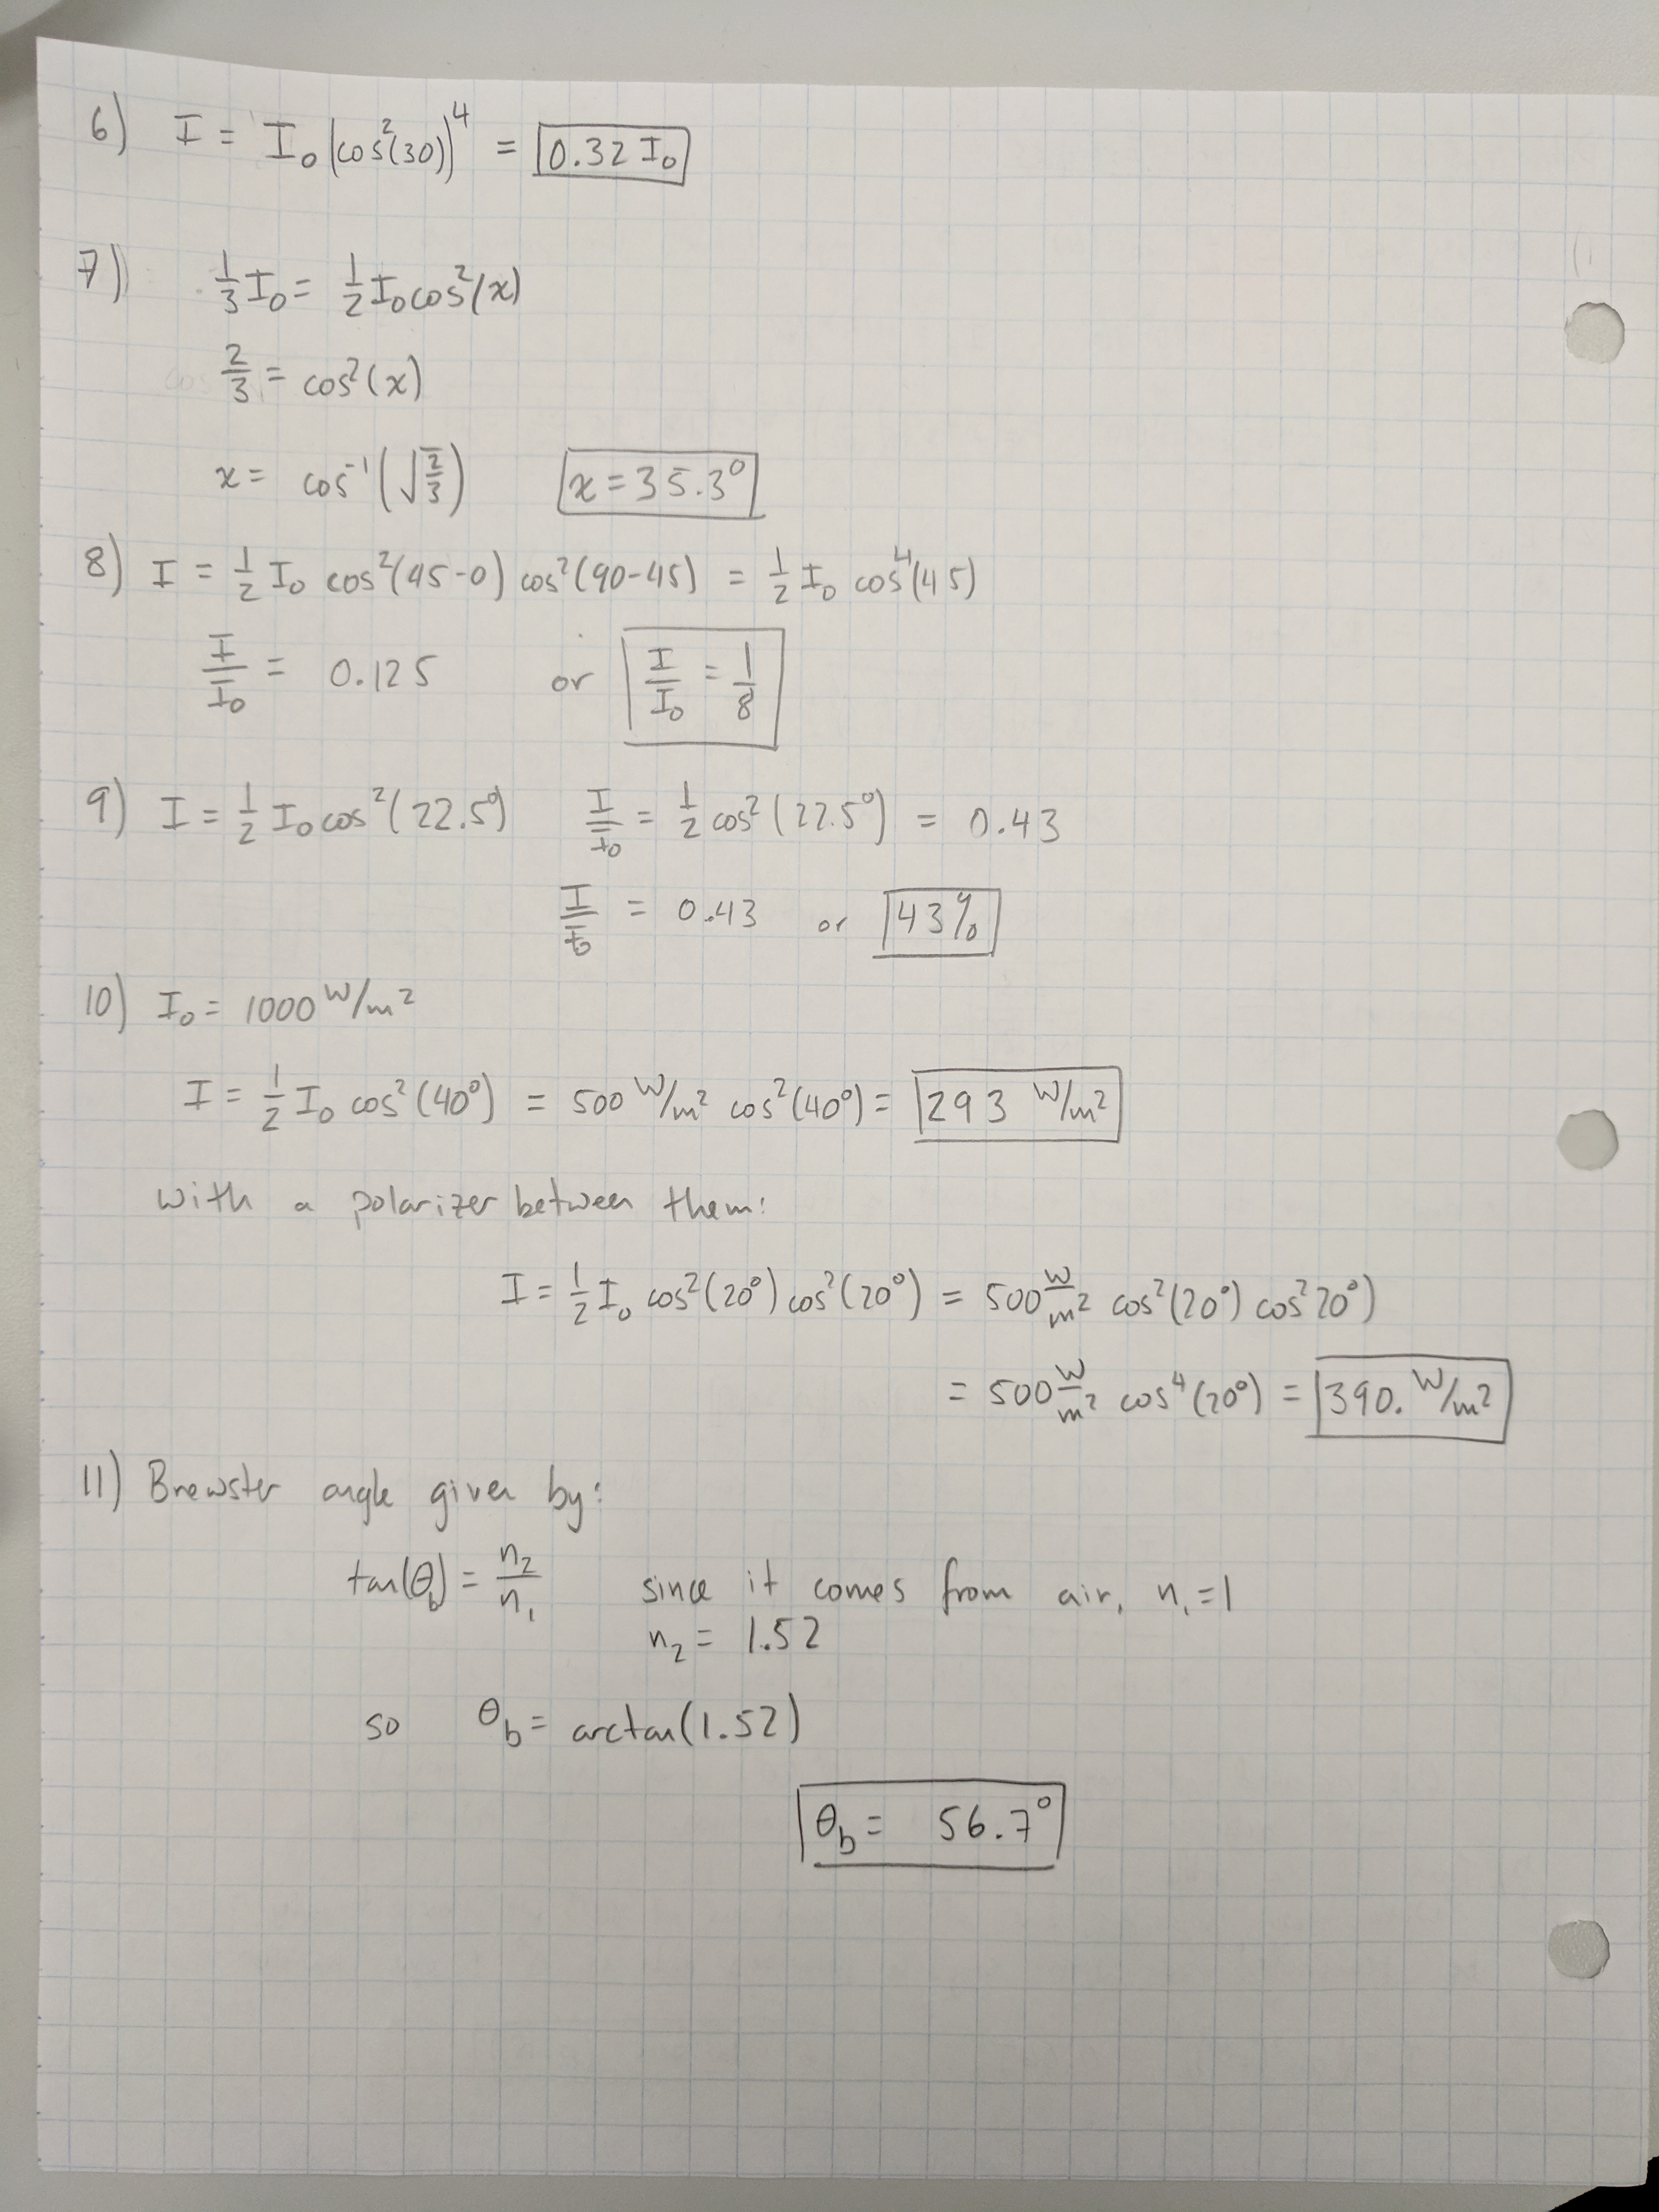 6) I = I₀(cos²(30))⁴ = 0.32 I₀
7) 1/3 I₀ = 1/2 I₀ cos²(x)
2/3 = cos²(x)
x = cos⁻¹(√(2/3)) x = 35.3°
8) I = 1/2 I₀ cos²(45-0) cos²(90-45) = 1/2 I₀ cos⁴(45)
I/I₀ = 0.125 or I/I₀ = 1/8
9) I = 1/2 I₀ cos²(22.5°) I/I₀ = 1/2 cos²(22.5°) = 0.43
I/I₀ = 0.43 or 43%
10) I₀ = 1000 W/m²
I = 1/2 I₀ cos²(40°) = 500 W/m² cos²(40°) = 293 W/m²
with a polarizer between them:
I = 1/2 I₀ cos²(20°) cos²(20°) = 500 W/m² cos²(20°) cos²20°)
= 500 W/m² cos⁴(20°) = 390. W/m²
11) Brewster angle given by:
tan(θb) = n₂/n₁ since it comes from air, n₁ = 1
n₂ = 1.52
so θb = arctan(1.52)
θb = 56.7°